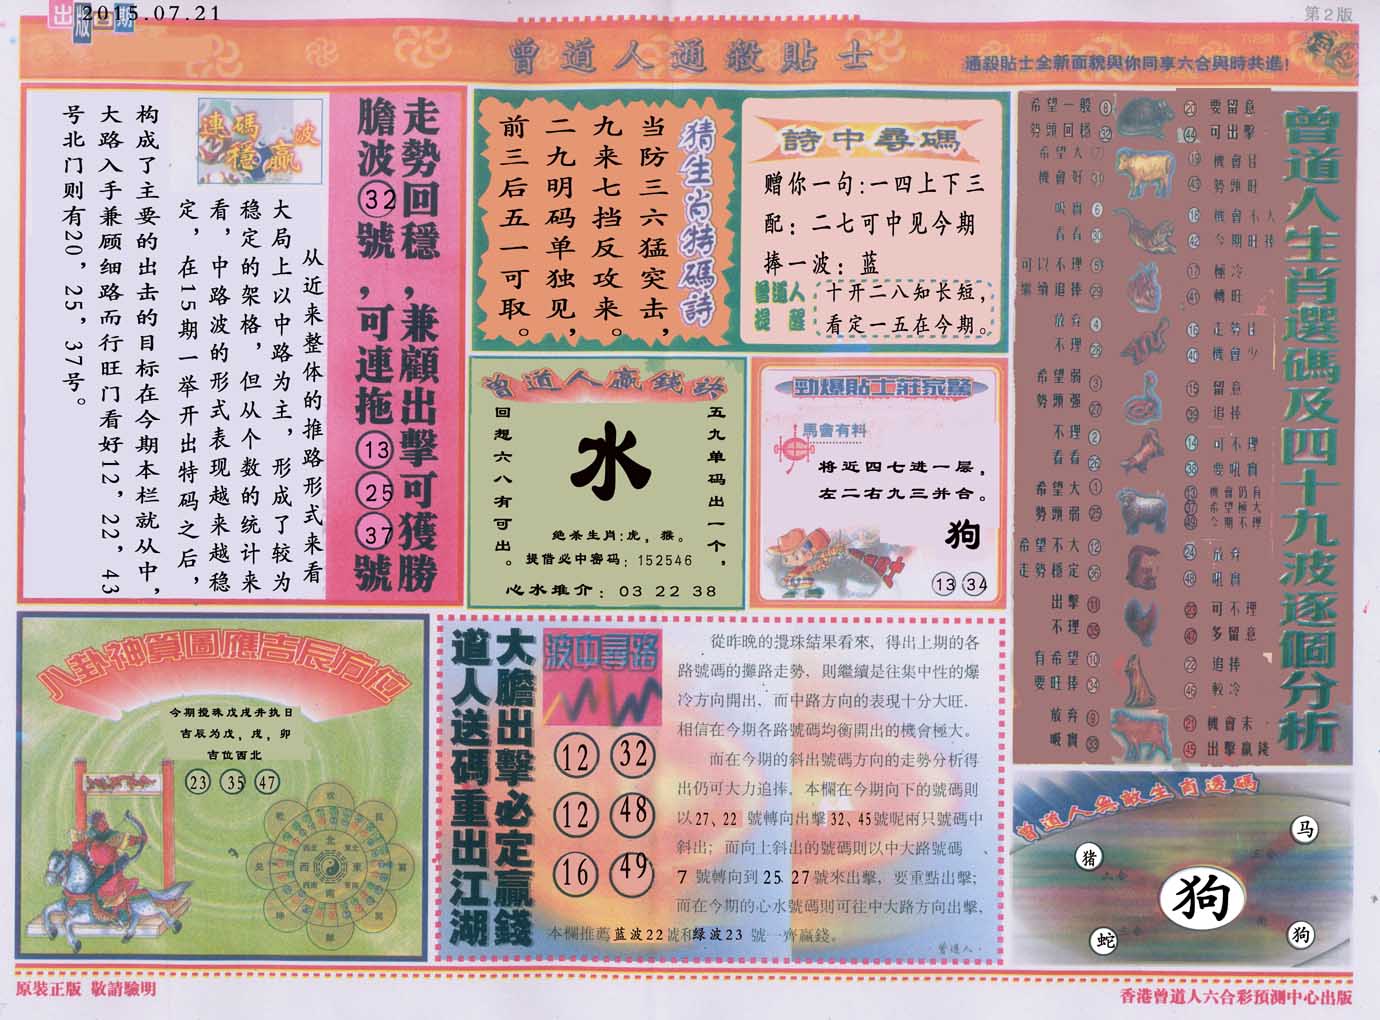 出版日期
2015.07.21
第2版
曾道人通殺貼士
通殺貼士全新面貌與你同享六合與時共進!
走勢回穩,兼顧出擊可獲勝
膽波32號,可連拖132537號
連碼波
穩贏
从近来整体的推路形式来看
大局上以中路为主,形成了较为
稳定的架格,但从个数的统计来
看,中路波的形式表现越来越稳
定,在15期一举开出特码之后,
构成了主要的出击的目标在今期本栏就从中,
大路入手兼顾细路而行旺门看好12,22,43
号北门则有20,25,37号。
猜生肖特碼詩
当防三六猛突击,
九来七挡反攻来。
二九明码单独见,
前三后五一可取。
詩中尋碼
赠你一句:一四上下三
配:二七可中见今期
捧一波:蓝
曾道人
提醒
十开二八知长短,
看定一五在今期。
曾道人贏錢詩
五九单码出一个,
回想六八有可出。
水
绝杀生肖:虎,猴。
提借必中密码:152546
心水推介:03 22 38
勁爆貼士莊家驚
馬會有料
将近四七进一层,
左二右九三并合。
狗
13 34
曾道人生肖選碼及四十九波逐個分析
希望一般 8 20 要留意
勢頭回穩 32 44 可出擊
希望大 7 19 機會佳
機會好 31 43 勢頭旺
吸實 6 18 機會不大
看看 30 42 今期旺捧
可以不理 5 17 極冷
繼續追捧 29 41 轉旺
放弃 4 16 走勢佳
不理 28 40 機會少
希望弱 3 15 留意
勢頭强 27 39 追捧
不理 2 14 可不理
看看 26 38 要吼實
希望大 1 13 機會仍有
37 希望極大
勢頭弱 25 49 今期不理
希望不大 12 24 放弃
走勢穩定 36 48 吼實
出擊 11 23 可不理
不理 35 47 多留意
有希望 10 22 追捧
要旺捧 34 46 較冷
放弃 9 21 機會末
吸實 33 45 出擊贏錢
八卦神算圖應吉辰方位
今期搅珠戊戌井执日
吉辰为戊,戌,卯
吉位西北
23 35 47
北
西 東
南
大膽出擊必定贏錢
道人送碼重出江湖
波中尋路
12 32
12 48
16 49
從昨晚的攪珠結果看來,得出上期的各
路號碼的攤路走勢,則繼續是往集中性的爆
冷方向開出,而中路方向的表現十分大旺.
相信在今期各路號碼均衡開出的機會極大。
而在今期的斜出號碼方向的走勢分析得
出仍可大力追捧,本欄在今期向下的號碼則
以27、22 號轉向出擊32、45號呢兩只號碼中
斜出;而向上斜出的號碼則以中大路號碼、
7 號轉向到25 27號來出擊,要重點出擊;
而在今期的心水號碼則可往中大路方向出擊,
本欄推薦蓝波22號和绿波23 號一齊贏錢。
曾道人·
曾道人無敵生肖透碼
马
猪
狗
蛇
狗
原裝正版 敬請驗明
香港曾道人六合彩預測中心出版